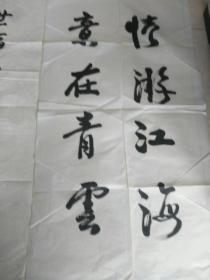 情游江海
意在青雲